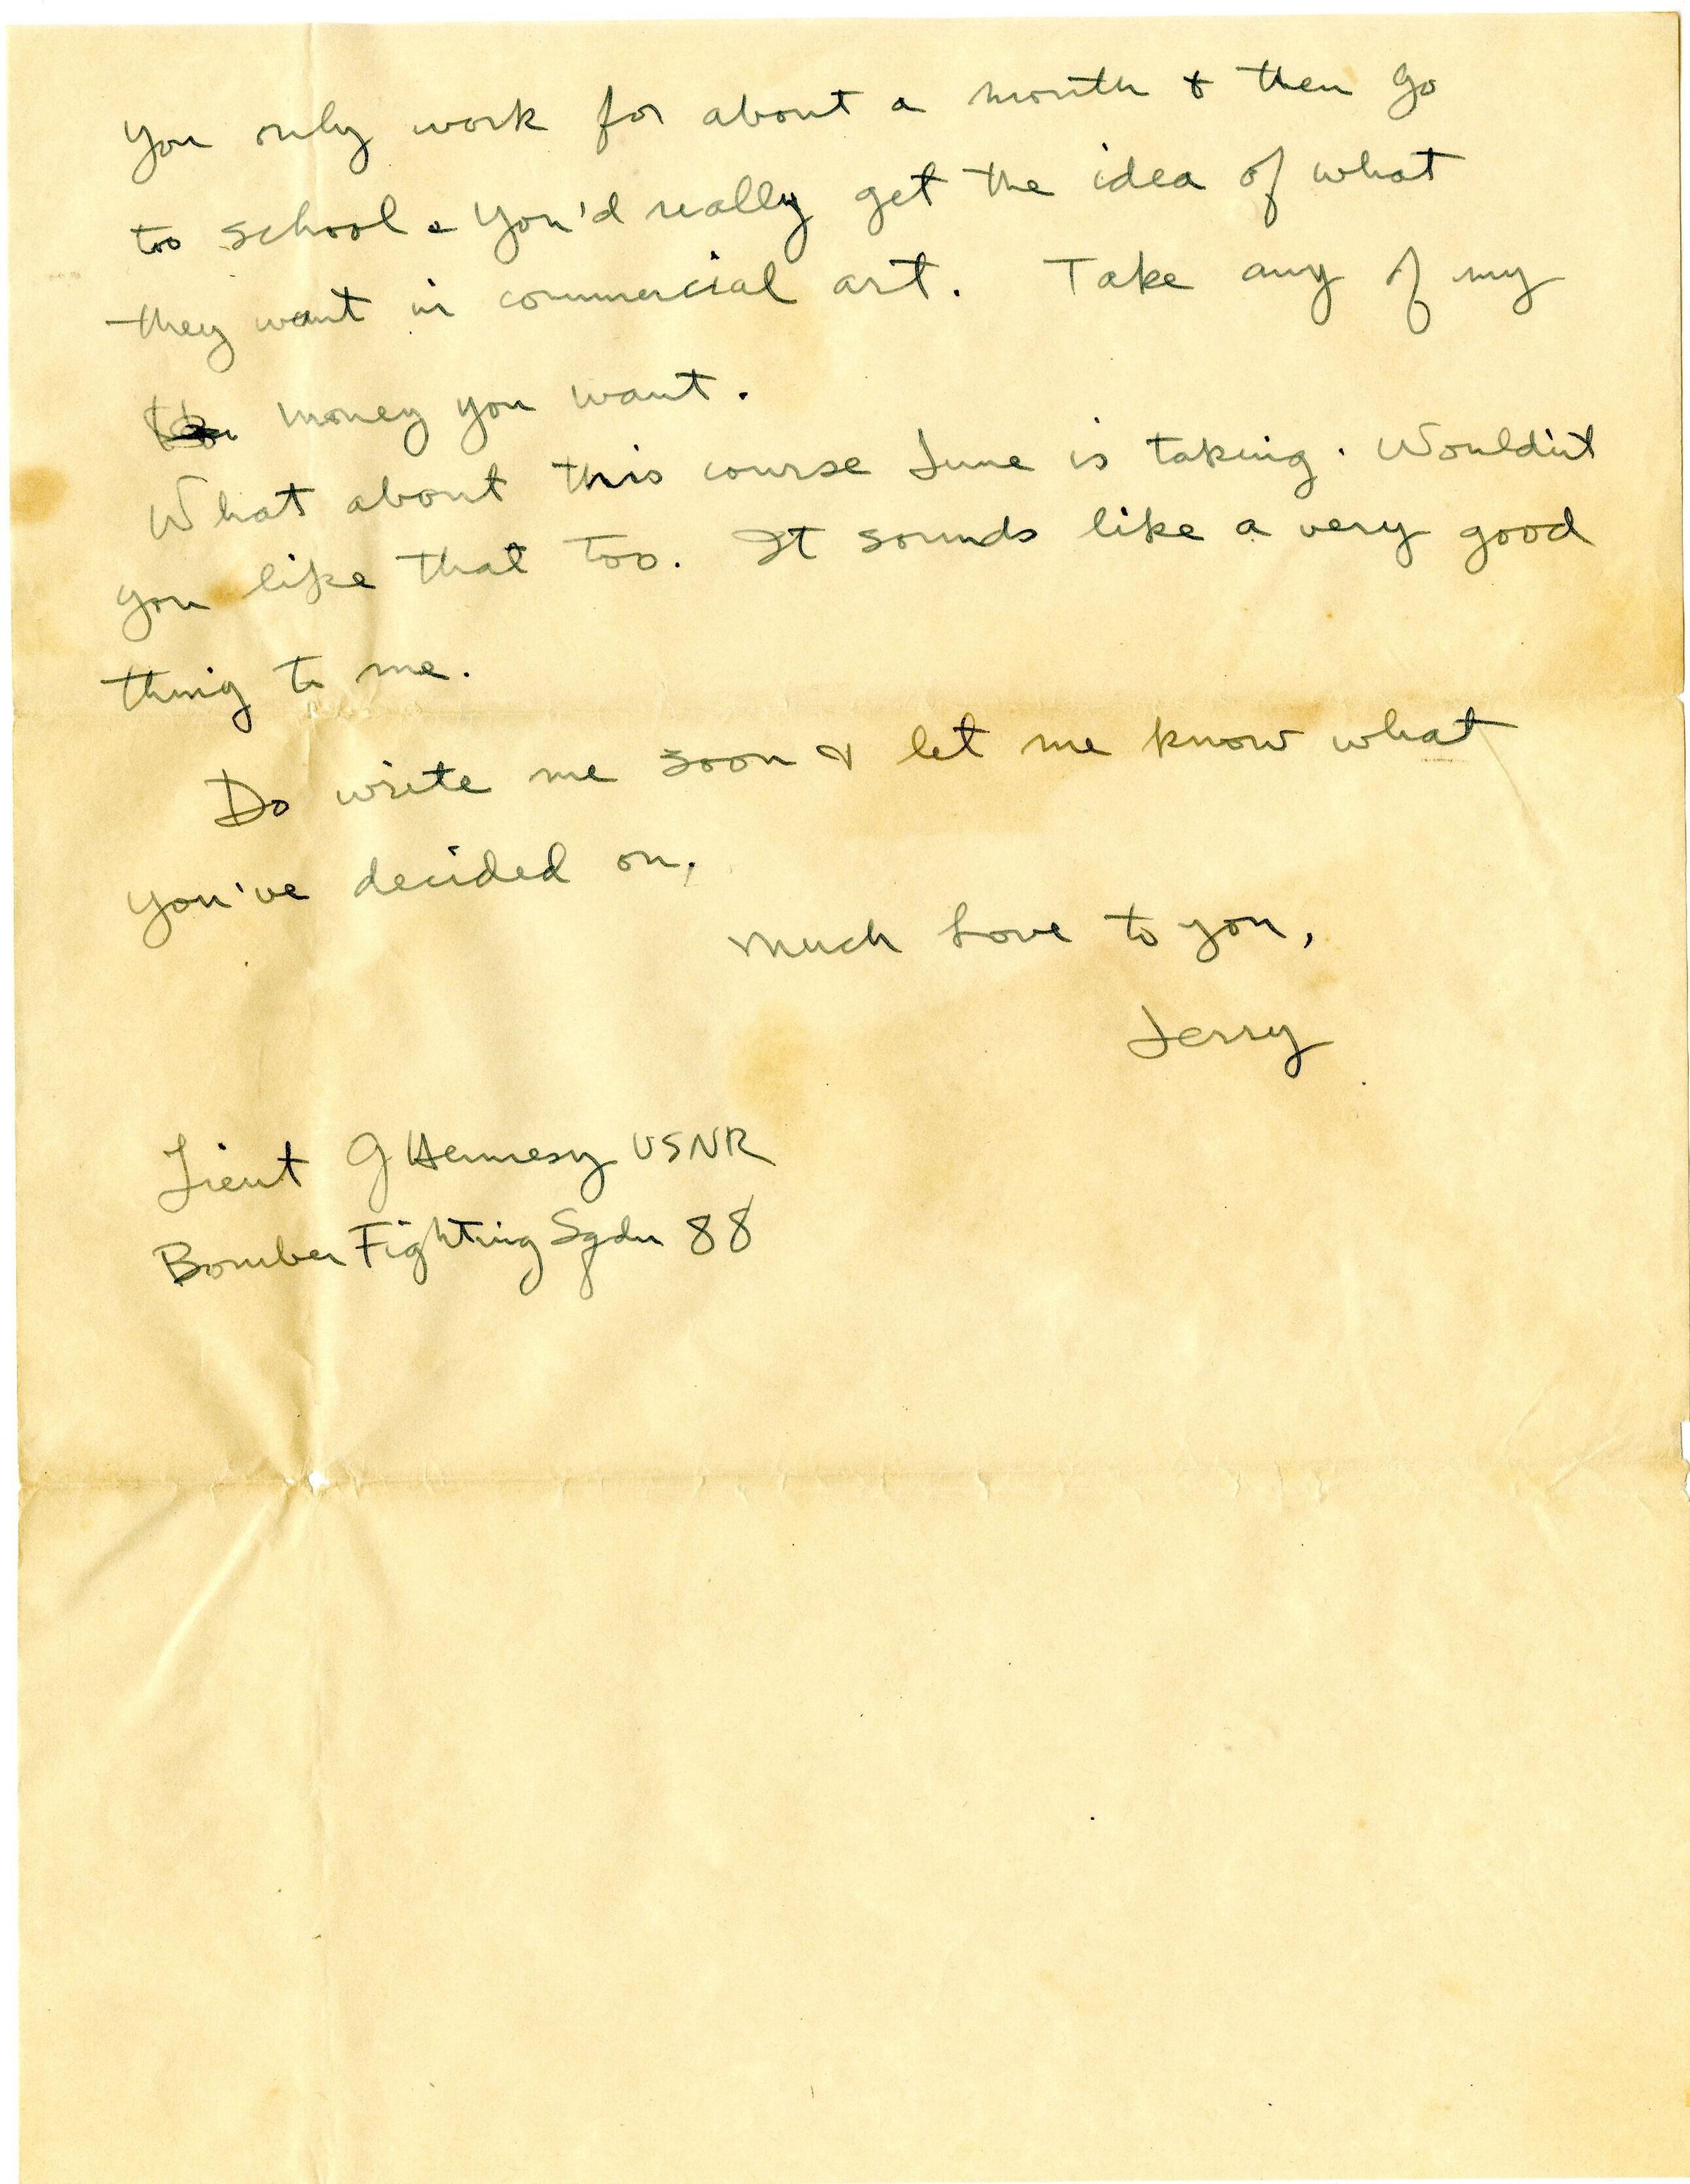 You only work for about a month & then go
too school. You'd really get the idea of what
they want in commercial art. Take any of my
money you want.
What about this course June is taking. Wouldn't
you like that too. It sounds like a very good
thing to me.
Do write me soon & let me know what
you've decided on.
Much Love to you,
Jerry
Lieut G Hennesy USNR
Bomber Fighting Sqdn 88